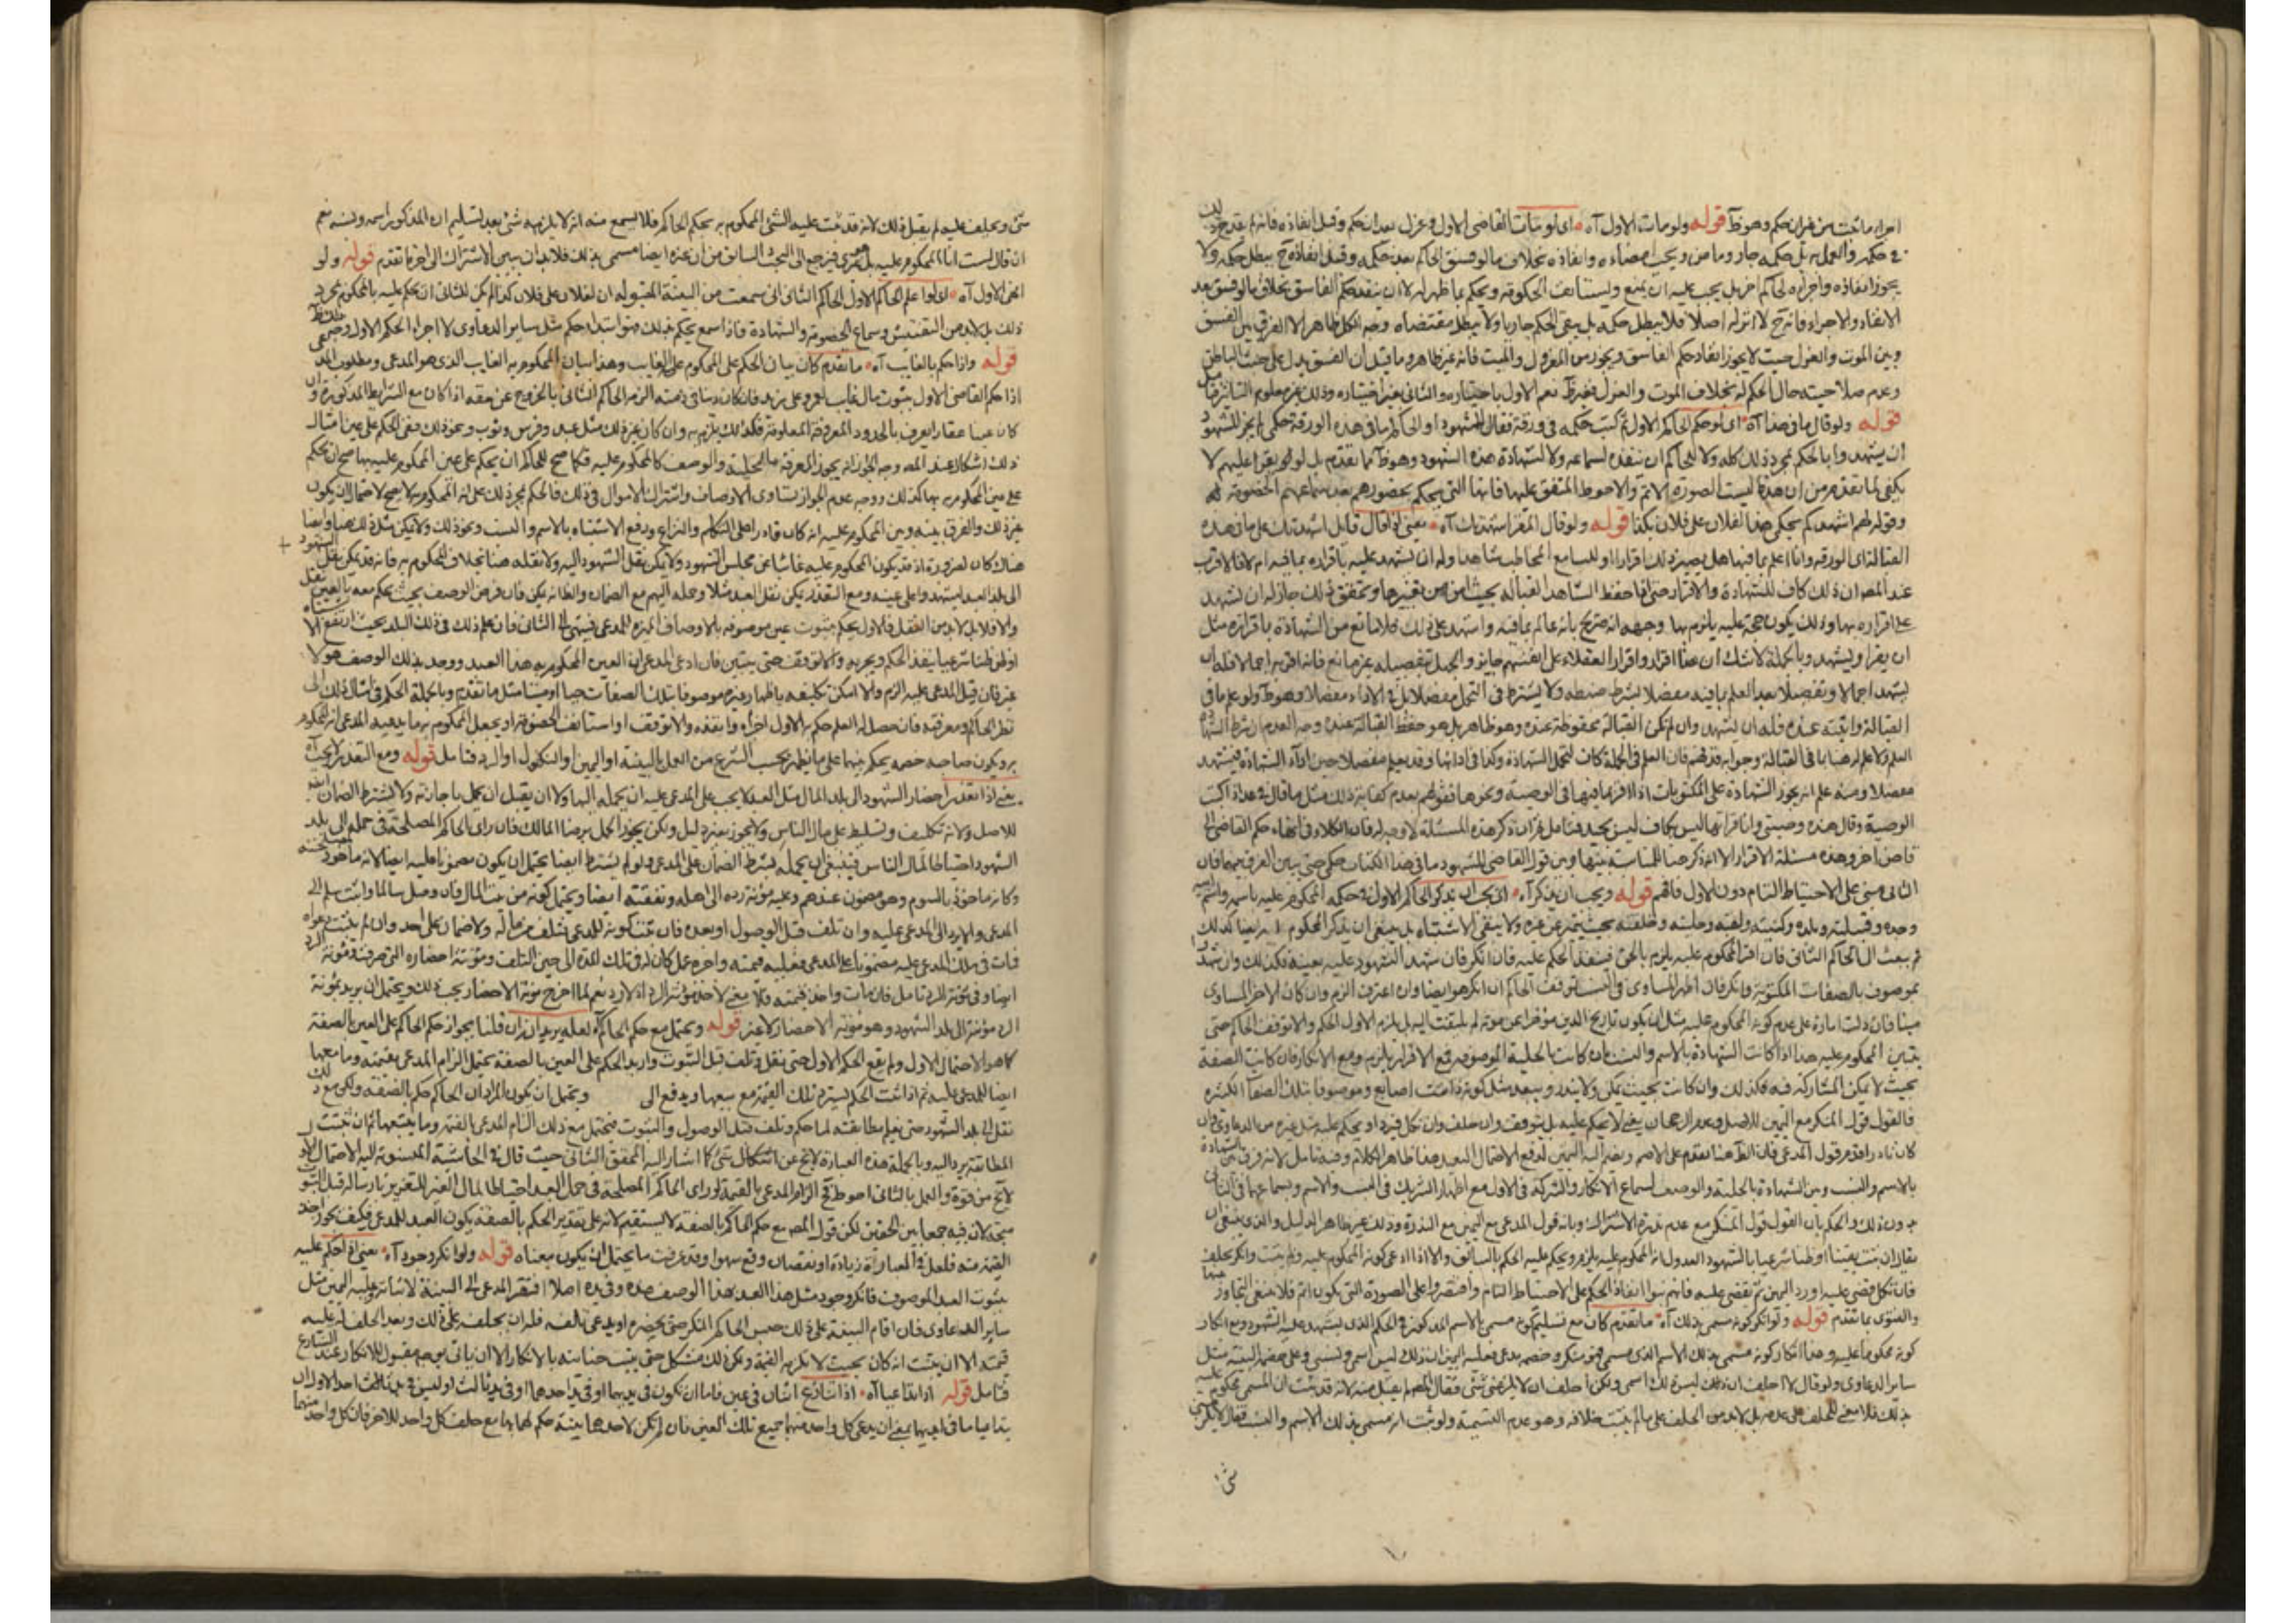 اجراء ما ثبت من غير ان حكم وهو ظ قوله ولو مات الاول آه اى لو مات القاضى الاول وعزل بعد ان حكم وقبل انفاذه فانه لم يقدح
فى حكمه والعمل به بل حكمه جار وماض ويجب امضاءه وانفاذه بخلاف ما لو فسق الحاكم بعد حكمه وقبل انفاذه ح يبطل حكمه ولا
يجوز انفاذه واجراءه لحاكم اخر بل يجب عليه ان يمنع ويستانف الحكومة ويحكم بما ظهر له لا ان ينفذ حكم الفاسق بخلاف ما لو فسق بعد
الانفاذ والاجراء فانه ح لا اثر له اصلا فلا يبطل حكمه بل يبقى الحكم جاريا ولا يبطل مقتضاه وجه الكل ظاهر الا الفرق بين الفسق
وبين الموت والعزل حيث لا يجوز انفاذ حكم الفاسق ويجوز من المعزول والميت فانه غير ظاهر وما قيل ان الفسق يدل على خبث الباطن
وعدم صلاحيته حال الحكم له بخلاف الموت والعزل فغير ظ نعم الاول باختياره والثانى بغير اختياره وذلك غير معلوم التاثير فتامل
قوله ولو قال ما فى هذا آه اى لو حكم الحاكم الاول ثم كتب حكمه فى ورقة فقال للشهود او الحاكم ما فى هذه الورقة حكمى لم يجز للشهود
ان يشهدوا بالحكم بمجرد ذلك كله ولا للحاكم ان ينفذه لسماعه ولا لشهادة هذه الشهود وهو ظ مما تقدم بل لو لم يقرا عليهم لا
يكفى لما تقدم من ان هذه ليست الصورة الاتم والاحوط المتفق عليها فانها التى يحكم بحضورهم بعد سماعهم الخصومة
وقوله لهم اشهدكم بحكمى هذا لفلان على فلان بكذا قوله ولو قال المقر اشهدتك آه يعنى لو قال قائل اشهدتك على ما فى هذه
القبالة اى الورقة وانا اعلم بما فيها هل يصير ذلك اقرارا وللسامع المخاطب شاهدا وله ان يشهد عليه باقراره بما فيه ام لا فالاقرب
عند المص ان ذلك كاف للشهادة والاقرار حتى اذا حفظ الشاهد القبالة بحيث امن من تغييرها وتحقق ذلك جاز له ان يشهد
على اقراره بها وذلك يكون حجة عليه يلزم بها وجهه انه صريح بانه عالم بما فيه واشهد على ذلك فلا مانع من الشهادة باقراره مثل
ان يقرا ويشهد وبالجملة لا شك ان هذا اقرار واقرار العقلاء على انفسهم جايز والجهل بتفصيله غير مانع فانه اقر به اجمالا فله ان
يشهد اجمالا وتفصيلا بعد العلم بما فيه مفصلا بشرط ضبطه ولا يشترط فى التحمل مفصلا بل فى الاداء مفصلا وهو ظ ولو علم ما فى
القبالة واثبته عنده فله ان يشهد وان لم تكن القبالة محفوظة عنده وهو ظاهر بل هو حفظ القبالة عنده وجه العدم ان شرط الشهادة
العلم ولا علم له هنا بما فى القبالة وجوابه قد فهم فان العلم فى الجملة كان لتحمل الشهادة وكذا فى ادائها وقد يعلم مفصلا حين اداء الشهادة فيشهد
مفصلا ومنه علم انه يجوز الشهادة على المكتوبات اذا اقر بما فيها فى الوصية ونحوها فقولهم بعدم كفاية ذلك مثل ما قال فى عد اذا كتب
الوصية وقال هذه وصيتى وانا اقرا بها ليس بكاف ليس بجيد فتامل ثم ان ذكر هذه المسئلة لا وجه له فان الكلام فى انهاء حكم القاضى الى
قاض اخر وهذه مسئلة الاقرار الا انه ذكر هنا للمناسبة بينها وبين قول القاضى للشهود ما فى هذا الكتاب حكمى حتى يبين الفرق بينهما فان
الثانى مبنى على الاحتياط التام دون الاول فافهم قوله ويجب ان يذكر آه اى يجب ان يذكر الحاكم الاول فى حكمه المحكوم عليه باسمه واسم ابيه
وجده وقبيلته وبلده وكنيته ولقبه وحليته وخلقته بحيث يتميز عن غيره ولا يبقى الاشتباه بل ينبغى ان يذكر المحكوم به ايضا كذلك
ثم يبعث الى الحاكم الثانى فان اقر المحكوم عليه يلزم بالحق فينفذ الحكم عليه فان انكر فان شهد الشهود عليه بعينه فكذلك وان شهد
بموصوف بالصفات المكتوبة وانكر فان اظهر المساوى فى النسب توقف الحاكم ان انكر هو ايضا وان اعترف الزم وان كان الاخر المساوى
ميتا فان دلت امارة على عدم كونه المحكوم عليه مثل ان يكون تاريخ الدين مؤخرا عن موته لم يلتفت اليه بل يلزم الاول الحكم والا توقف الحاكم حتى
يتبين المحكوم عليه هذا اذا كانت الشهادة بالاسم والنسب وان كانت بالحلية الموصوفة فمع الاقرار يلزم ومع الانكار فان كانت الصفة
بحيث لا يمكن المشاركة فيه فكذلك وان كانت بحيث يمكن ولا يندر ويبعد مثل كونه ذا ست اصابع وموصوفا بتلك الصفات الكثيرة
فالقول قول المنكر مع اليمين للاصل وعدم الرجحان يعنى لا يحكم عليه بل يتوقف وان حلف وان نكل فيرد او يحكم عليه مثل غيره من الدعاوى وان
كان نادرا قدم قول المدعى فان الظ هنا تقدم على الاصل ويضم اليه اليمين لدفع الاحتمال البعيد هذا ظاهر الكلام وفيه تامل لانه فرق بين الشهادة
بالاسم والنسب وبين الشهادة بالحلية والوصف لسماع الانكار والشركة فى الاول مع اظهار الشريك فى النسب والاسم وسماعها فى الثانى
بدون ذلك والحكم بان القول قول المنكر مع عدم ندرة الاشتراك وبانه قول المدعى مع اليمين مع الندرة وذلك غير ظاهر الدليل والذى ينبغى ان
يقال ان ثبت يقينا او ظنا شرعيا بالشهود العدول انه المحكوم عليه يلزم ويحكم عليه الحكم بالسابق والا اذا ادعى كونه المحكوم عليه ولم يثبت وانكر يحلف
فان نكل قضى عليه او رد اليمين ثم يقضى عليه فانهم بنوا انفاذ الحكم على الاحتياط التام واقتصروا على الصورة التى يكون اتم فلا ينبغى التجاوز عنها
والفتوى بما تقدم قوله ولو انكر كونه مسمى بذلك آه ما تقدم كان مع تسليم كونه مسمى بالاسم المذكور فى الحكم الذى يشهد عليه الشهود ومع انكار
كونه محكوما عليه وهذا انكار كونه مسمى بذلك الاسم الذى مسمى فهو منكر وخصمه مدعى فعليه اليمين ان ذلك ليس اسمى ونسبى وعلى خصمه البينة مثل
سائر الدعاوى ولو قال لا احلف ان ذلك ليس اسمى ولكن احلف ان لا يلزمنى شىء فقال المص لم يقبل منه لانه قد ثبت ان المسمى محكوم عليه
بذلك فلا معنى للحلف على عدمه بل لا بد من الحلف على ما لم يثبت خلافه وهو عدم التسمية ولو ثبت انه مسمى بذلك الاسم والنسب فقال لا يلزمنى
شىء
شىء ويحلف عليه لم يقبل ذلك لانه قد ثبت عليه الشىء المحكوم به بحكم الحاكم فلا يسمع منه انه لا يلزمه شىء بعد تسليم ان المذكور اسمه ونسبه نعم
ان قال لست انا المحكوم عليه بل غيرى فيرجع الى البحث السابق من ان غيره ايضا مسمى بذلك فلا بد ان يبين الاشتراك الى اخر ما تقدم قوله ولو
انهى الاول آه اى لو اعلم الحاكم الاول الحاكم الثانى انى سمعت من البينة المقبولة ان لفلان على فلان كذا لم يكن للثانى ان يحكم عليه بالمحكوم بمجرد
ذلك بل لا بد من التفتيش وسماع الخصومة والشهادة فاذا سمع يحكم بذلك فهو ابتداء حكم مثل سائر الدعاوى لا اجراء الحكم الاول
قوله واذا حكم بالغايب آه ما تقدم كان بيان الحكم على المحكوم على الغايب وهذا بيان المحكوم به الغايب الذى هو المدعى ومطلوب المد
اذا حكم القاضى الاول بثبوت مال غايب لعمرو على زيد فان كان دينا فى ذمته الزمه الحاكم الثانى بالخروج عن حقه اذا كان مع الشرايط المذكورة وان
كان عينا عقارا يعرف بالحدود المعروفة المعلومة فكذلك يلزم به وان كان غير ذلك مثل عبد وفرس وثوب ونحو ذلك ففى الحكم على عين امثال
ذلك اشكال عند المص وجه الجواز انه يجوز المعرفة بالحلية والوصف كالمحكوم عليه فكما صح للحاكم ان يحكم على عين المحكوم عليه بها صح ان يحكم
على عين المحكوم به بها كذلك ووجه عدم الجواز تساوى الاوصاف واشتراك الاموال فى ذلك فالحكم بمجرد ذلك على انه المحكوم به لا يصح لاحتمال ان يكون
غير ذلك والفرق بينه وبين المحكوم عليه انه كان قادرا على التكلم والنزاع ودفع الاشتباه بالاسم والنسب ونحو ذلك ولا يمكن مثل ذلك هنا وايضا
هناك كان لضرورة اذ قد يكون المحكوم عليه غائبا عن مجلس الشهود ولا يمكن نقل الشهود اليه ولا نقله هنا بخلاف المحكوم به فانه قد يمكن نقل الشهود
الى بلد العبد ليشهدوا على عينه ومع التعذر يمكن نقل العبد مثلا وحمله اليهم مع الضمان والظ انه يمكن فان فرض الوصف بحيث يحكم معه بالعين
والا فلا بل لا بد من النقل فالاول يحكم بثبوت عين موصوفة بالاوصاف المميزة للمدعى فينتهى الى الثانى فان علم ذلك فى ذلك البلد بحيث ارتفع
او ظن ظنا شرعيا ينفذ الحكم ويجريه والا توقف حتى يتبين فان ادعى المدعى ان العين المحكوم به هذا العبد ووجد بذلك الوصف هو لا
غير فان قبل المدعى عليه الزم والا امكن تكليفه باظهار غيره موصوفا بتلك الصفات حيا او ميتا مثل ما تقدم وبالجملة الحكم فى امثال ذلك الى
نظر الحاكم ومعرفته فان حصل له العلم حكم به الاول اجراه وانفذه والا توقف او استانف الخصومة او يجعل المحكوم به ما يدعيه المدعى انه المحكوم
به ويكون صاحبه خصمه يحكم بينهما على ما يظهر بحسب الشرع من العمل بالبينة او اليمين او النكول او الرد فتامل قوله ومع التعذر لا يجب آه
يعنى اذا تعذر احضار الشهود الى بلد المال مثل العبد لا يجب على المدعى عليه ان يحمله اليها ولا ان يقبل ان يحمل باجارته ولا بشرط الضمان
للاصل ولانه تكليف وتسليط على مال الناس ولا يجوز بغير دليل ولكن يجوز الحمل برضا المالك فان راى الحاكم المصلحة فى حمله الى بلد
الشهود احتياطا لمال الناس فينبغى ان يحمله بشرط الضمان على المدعى ولو لم يشترط ايضا يحتمل ان يكون مضمونا عليه ايضا لانه ماخوذ
وكانه ماخوذ بالسوم وهو مضمون عندهم وعليه مؤنة رده الى اهله ونفقته ايضا ويحتمل كونه من بيت المال فان وصل سالما واثبت سلم الى
المدعى والا يرد الى المدعى عليه وان تلف قبل الوصول او بعده فان ثبت كونه للمدعى فتلف من ماله ولا ضمان على احد وان لم يثبت دعواه
فات فى ملك المدعى عليه مضمونا على المدعى فعليه قيمته واجرة عمل كان له فى تلك المدة الى حين التلف ومؤنة احضاره التى صرفت ومؤنة الرد
ايضا وفى مؤنة الرد تامل فان مات واخذ قيمته فلا معنى لاخذ مؤنة الرد اذ لا رد نعم لما اخرج مؤنة الاحضار يجب ذلك ويحتمل ان يريد بمؤنة
الرد مؤنة الى بلد الشهود وهو مؤنة الاحضار لا غير قوله ويحتمل مع حكم الحاكم آه لعله يريد ان ان قلنا بجواز حكم الحاكم على العين بالصفة
كما هو الاحتمال الاول ولم يقع الحكم الاول حتى نقل فتلف قبل الثبوت واريد الحكم على العين بالصفة يحتمل الزام المدعى بقيمته وما معها
ايضا للمدعى عليه ثم اذا ثبت الحكم يسترد تلك القيمة مع بيعها ويدفع الى ويحتمل ان يكون المراد ان الحاكم حكم بالصفة ولكن مع ذلك
نقل الى بلد الشهود حتى يعلم مطابقته لما حكم وتلف قبل الوصول والثبوت فيحتمل مع ذلك الزام المدعى بالقيمة وما يتبعها ثم ان ثبتت
المطابقة يرد اليه وبالجملة هذه العبارة لا يخ عن اشكال شىء كما اشار اليه المحقق الثانى حيث قال فى الحاشية المنسوبة اليه الاحتمال الاول
لا يخ من قوة والعمل بالثانى احوط فح الزام المدعى بالقيمة لو راى الحاكم المصلحة فى حمل العبد احتياطا لمال الغير للتغرير بارساله قبل الثبوت
متجه لان فيه جمعا بين الحقين لكن قول المص مع حكم الحاكم بالصفة لا يستقيم لانه على تقدير الحكم بالصفة يكون العبد للمدعى فكيف يجوز اخذ
القيمة منه فلعل فى العبارة زيادة او نقصان وقع سهوا وقد عرفت ما يحتمل ان يكون معناه قوله ولو انكر وجود آه يعنى اذا حكم عليه
بثبوت العبد الموصوف فانكر وجود مثل هذا العبد بهذا الوصف عنده وفى يده اصلا افتقر المدعى الى البينة لاثباته وعليه اليمين مثل
سائر الدعاوى فان اقام البينة على ذلك حبس الحاكم المنكر حتى يحضره او يدعى تلفه فله ان يحلفه على ذلك وبعد الحلف له عليه
قيمته الا ان يثبت انه كان بحيث لا يلزمه القيمة ولكن ذلك مشكل حتى يثبت خيانته بالانكار الا ان ياتى بوجه مقبول للانكار عند الشارع
فتامل قوله اذا تداعيا آه اذا تنازع اثنان فى عين فاما ان تكون فى يدهما او فى يد احدهما او فى يد ثالث او ليس فى يد ثالث احد الاول ان
يتداعيا ما فى ايديهما بمعنى ان يدعى كل واحد منهما جميع تلك العين فان لم يكن لاحدهما بينة حكم لهما بها مع حلف كل واحد للاخر فان كل واحد منهما